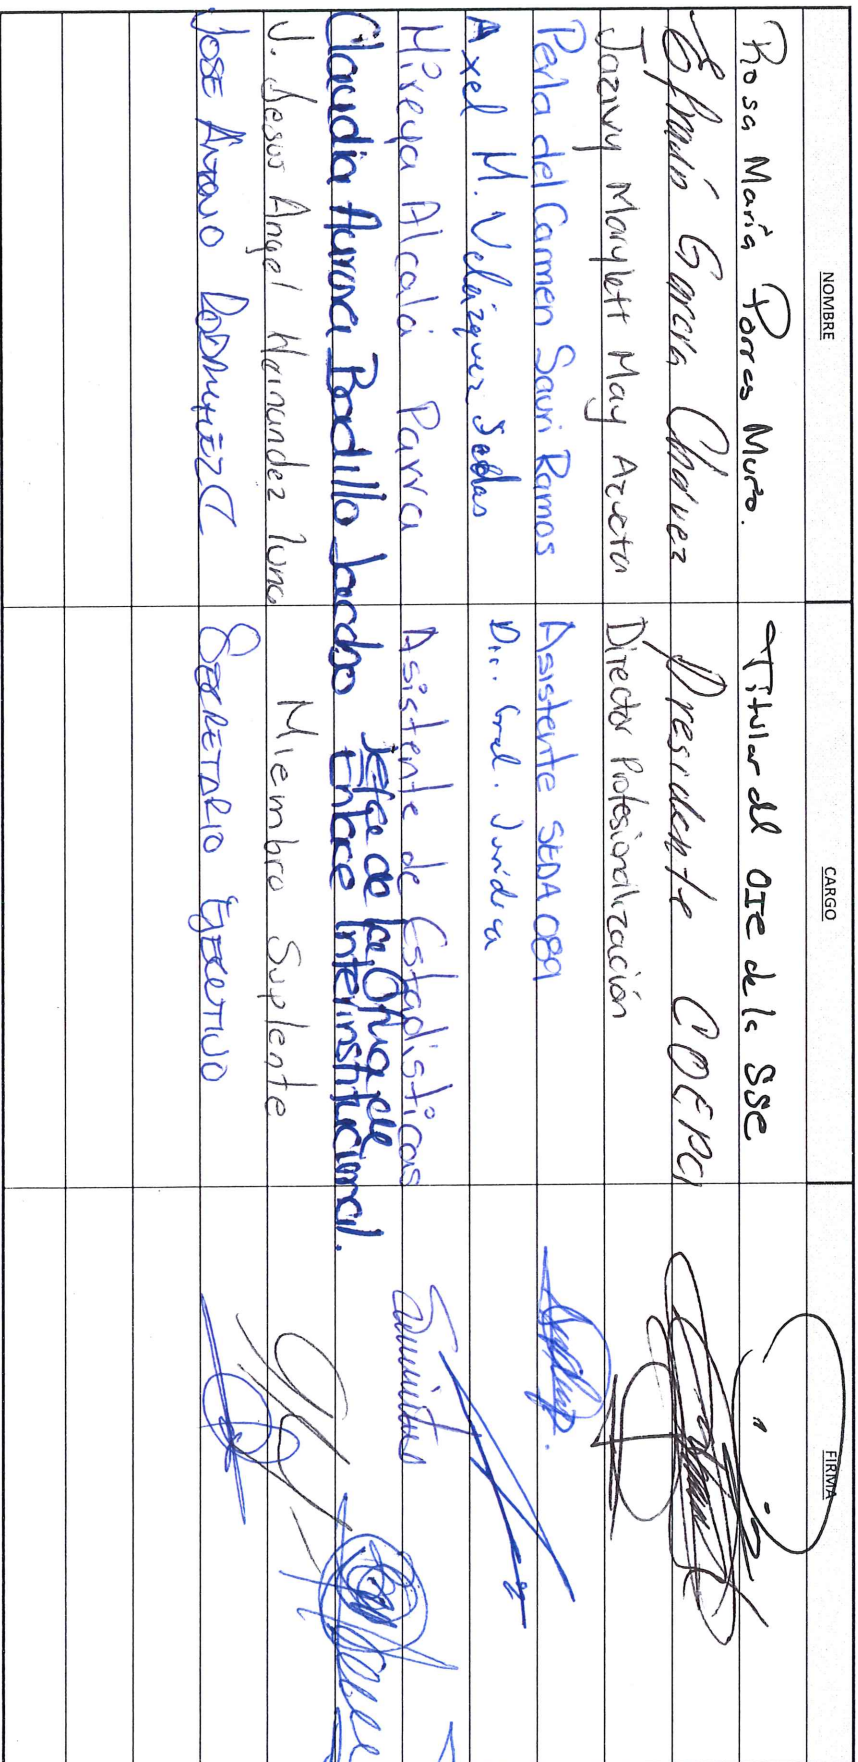 NOMBRE CARGO FIRMA
Rosa María Torres Muro. Titular del OIC de la SSC
Efraín García Chávez Presidente COEPCI
Jazivy Marylett May Azueta Director Profesionalización
Perla del Carmen Sauri Ramos Asistente SEDA 089
Axel M. Velázquez Seddas Dir. Gral. Jurídica
Mireya Alcalá Parra Asistente de Estadísticas
Claudia Aurora Badillo Jefe de la Oficina de
Enlace Interinstitucional.
J. Jesus Angel Hernandez Luna Miembro Suplente
JOSE ANTONIO RODRIGUEZ C SECRETARIO EJECUTIVO